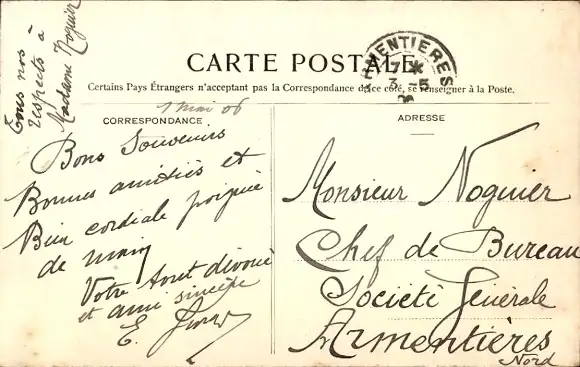 Tous nos
respects à
Madame Noguier
CARTE POSTALE
ARMENTIERES
7 *
3 -5
06
Certains Pays Étrangers n'acceptant pas la Correspondance de ce côté, se renseigner à la Poste.
1 Mai 06
CORRESPONDANCE
Bons Souvenirs
Bonnes amitiés et
Bien cordiale poignée
de main
Votre tout dévoué
et ami sincère
E.
ADRESSE
Monsieur Noguier
Chef de Bureau
Société Générale
Armentières
Nord